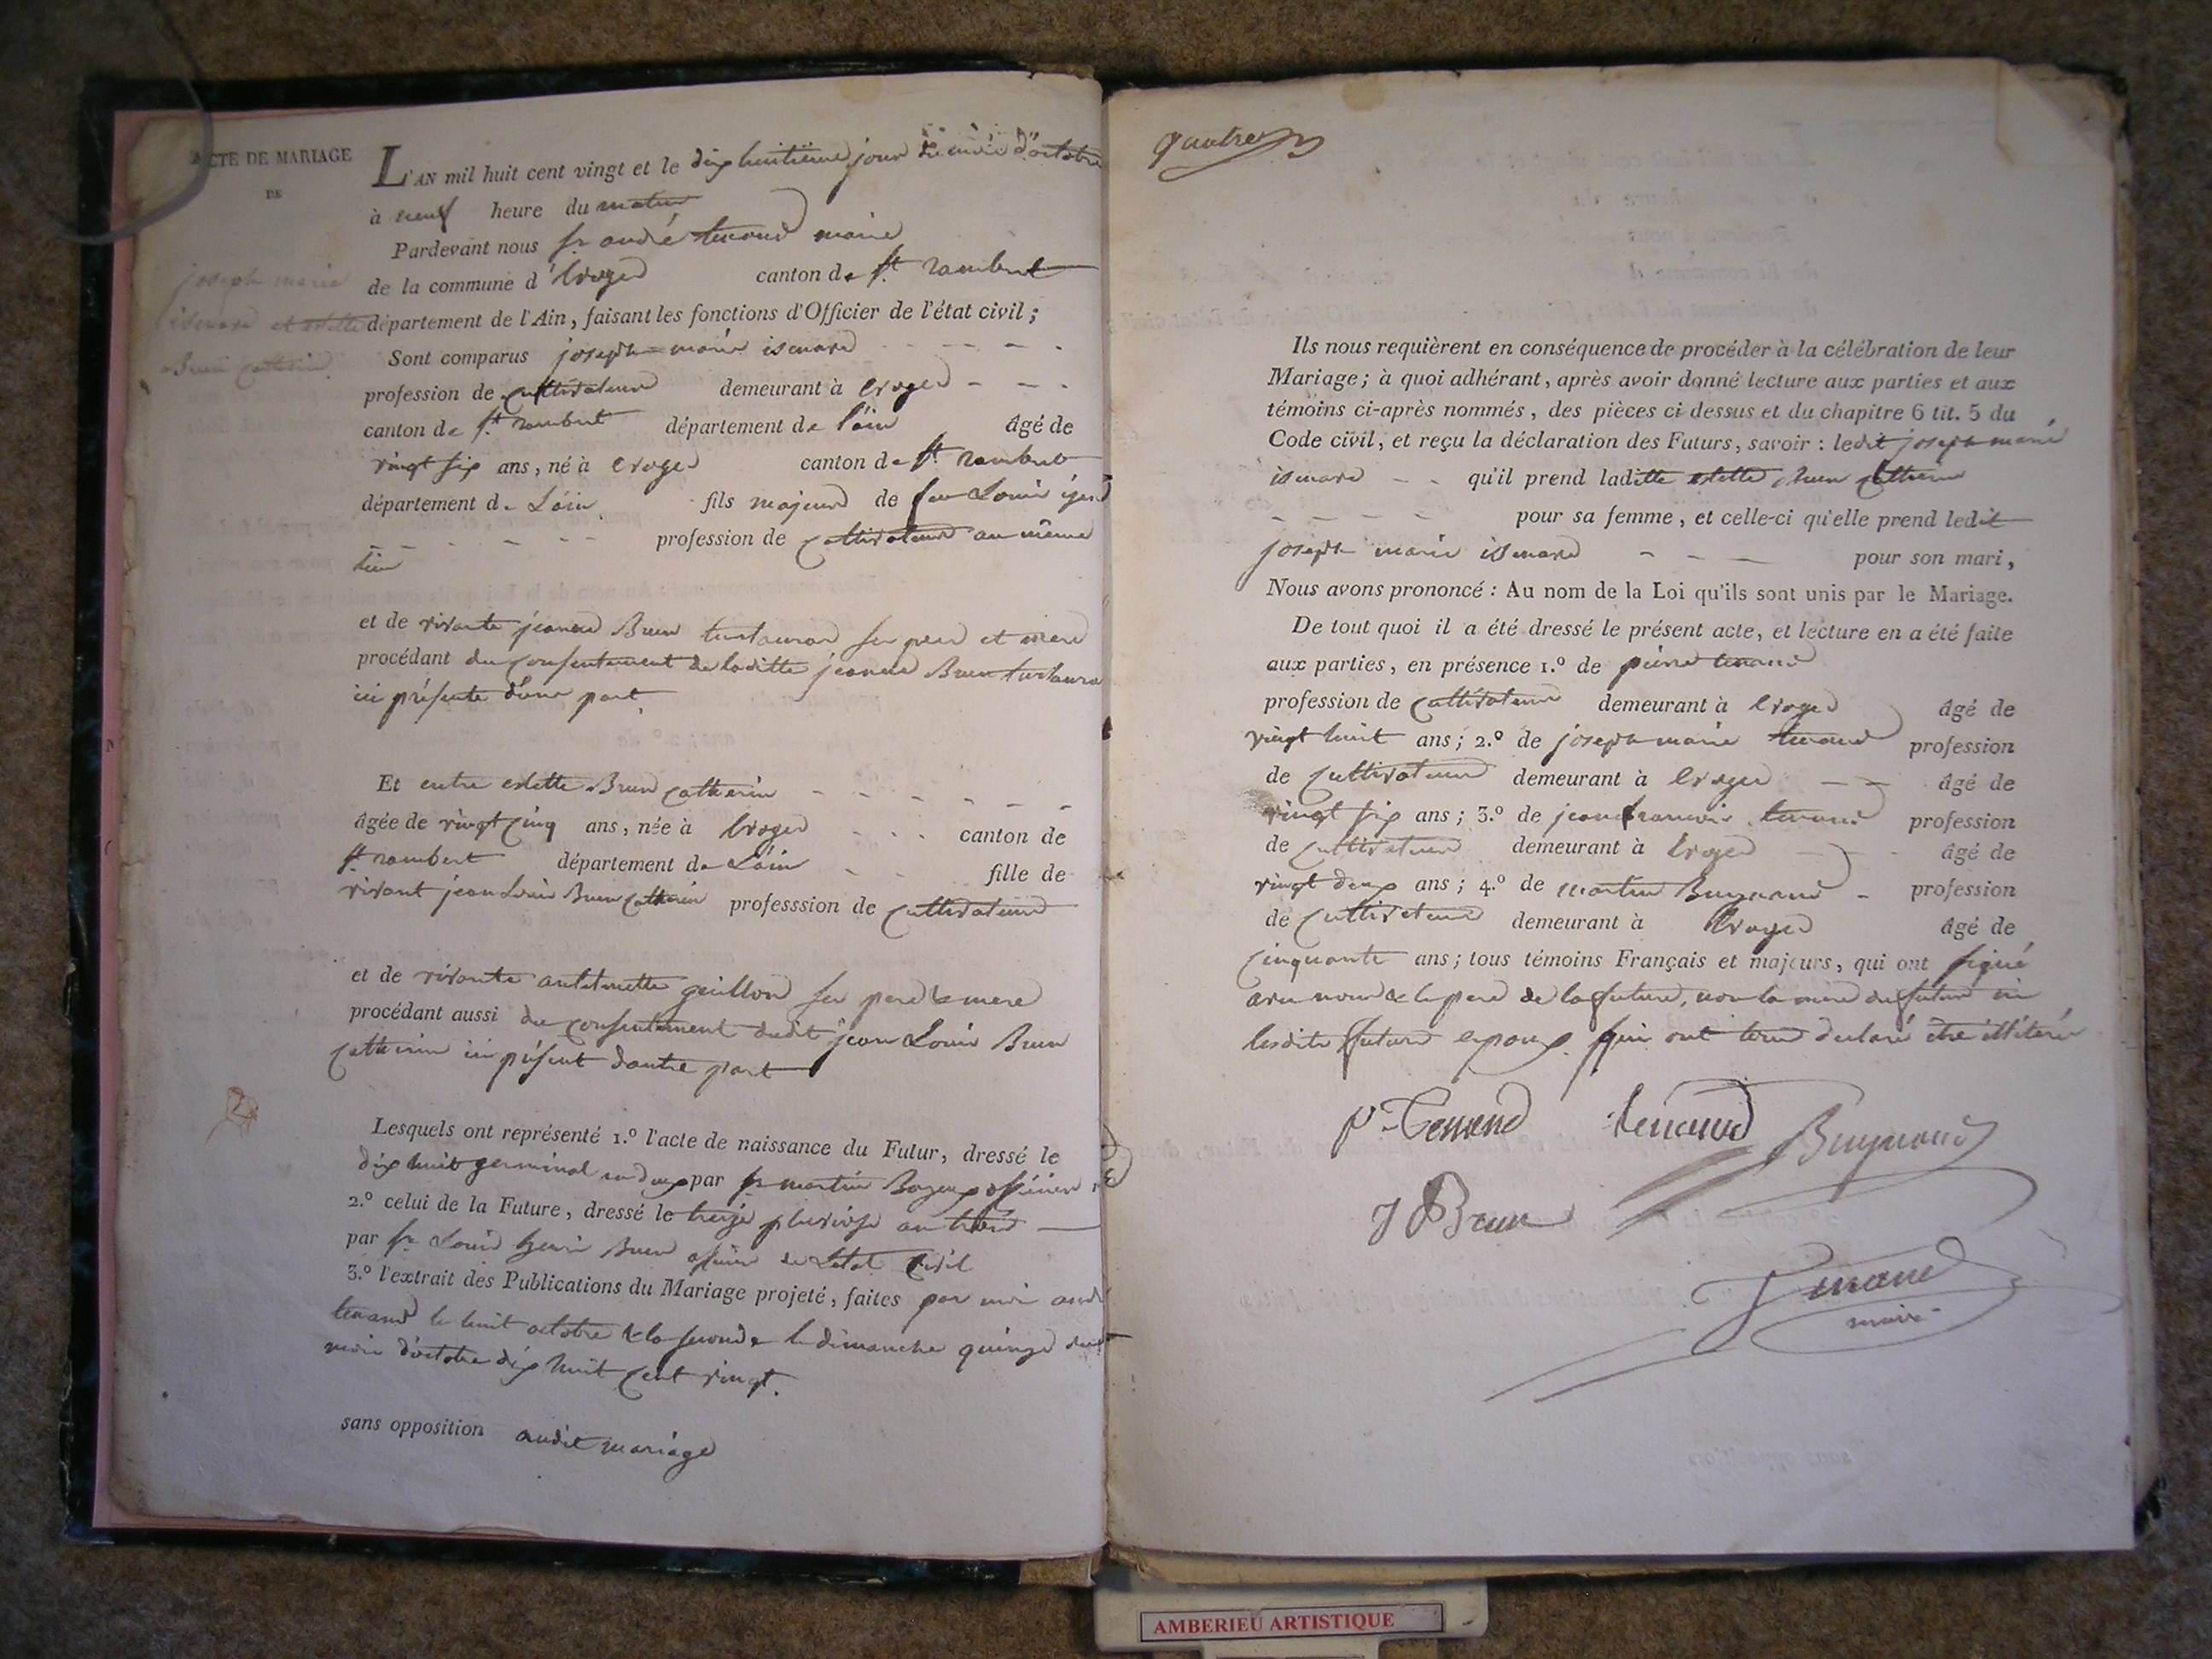 ACTE DE MARIAGE
DE
joseph marie
ismard et estelle
Brun Catherin
L'AN mil huit cent vingt et le dix huitième jour du mois d'octobre
à neuf heure du matin
Pardevant nous sr andré tenand maire
de la commune d' Evoges canton de st rambert
département de l'Ain, faisant les fonctions d'Officier de l'état civil ;
Sont comparus joseph marie ismard
profession de cultivateur demeurant à Evoges
canton de st rambert département de l'ain âgé de
vingt six ans, né à Evoges canton de st rambert
département de L'ain fils majeur de feu Louis
profession de cultivateur au même
lieu
et de vivante jeanne Brun ses pere et mere
procédant du consentement de laditte jeanne Brun
ici présente d'une part
Et entre estelle Brun Catherin
âgée de vingt cinq ans, née à Evoges canton de
st rambert département de L'ain fille de
vivant jean Louis Brun Catherin professsion de cultivateur
et de vivante antoinette guillon ses pere & mere
procédant aussi du consentement dudit jean Louis Brun
Catherin ici présent d'autre part
Lesquels ont représenté 1.º l'acte de naissance du Futur, dressé le
dix huit germinal an deux par sr martin officier
2.º celui de la Future, dressé le treize pluviose an trois
par sr Louis henri Brun officier de L'etat Civil
3.º l'extrait des Publications du Mariage projeté, faites par moi andré
tenand le huit octobre & la seconde le dimanche quinze dudit
mois d'octobre dix huit cent vingt.
sans opposition audit mariage
quatre
Ils nous requièrent en conséquence de procéder à la célébration de leur
Mariage ; à quoi adhérant, après avoir donné lecture aux parties et aux
témoins ci-après nommés, des pièces ci dessus et du chapitre 6 tit. 5 du
Code civil, et reçu la déclaration des Futurs, savoir : ledit joseph marie
ismard qu'il prend laditte estelle Brun Catherin
pour sa femme, et celle-ci qu'elle prend ledit
joseph marie ismard pour son mari,
Nous avons prononcé : Au nom de la Loi qu'ils sont unis par le Mariage.
De tout quoi il a été dressé le présent acte, et lecture en a été faite
aux parties, en présence 1.º de pierre tenand
profession de cultivateur demeurant à Evoges âgé de
vingt huit ans ; 2.º de joseph marie tenand profession
de cultivateur demeurant à Evoges âgé de
vingt six ans ; 3.º de jean francois tenand profession
de cultivateur demeurant à Evoges âgé de
vingt deux ans ; 4.º de martin Buynand profession
de cultivateur demeurant à Evoges âgé de
cinquante ans ; tous témoins Français et majeurs, qui ont signé
avec nous & le pere de la future, non la mere du futur ni
lesdits futurs epoux qui ont tous declaré etre illiterés
p. Tenand tenand Buynand
J L Brun
Tenand
maire
AMBERIEU ARTISTIQUE